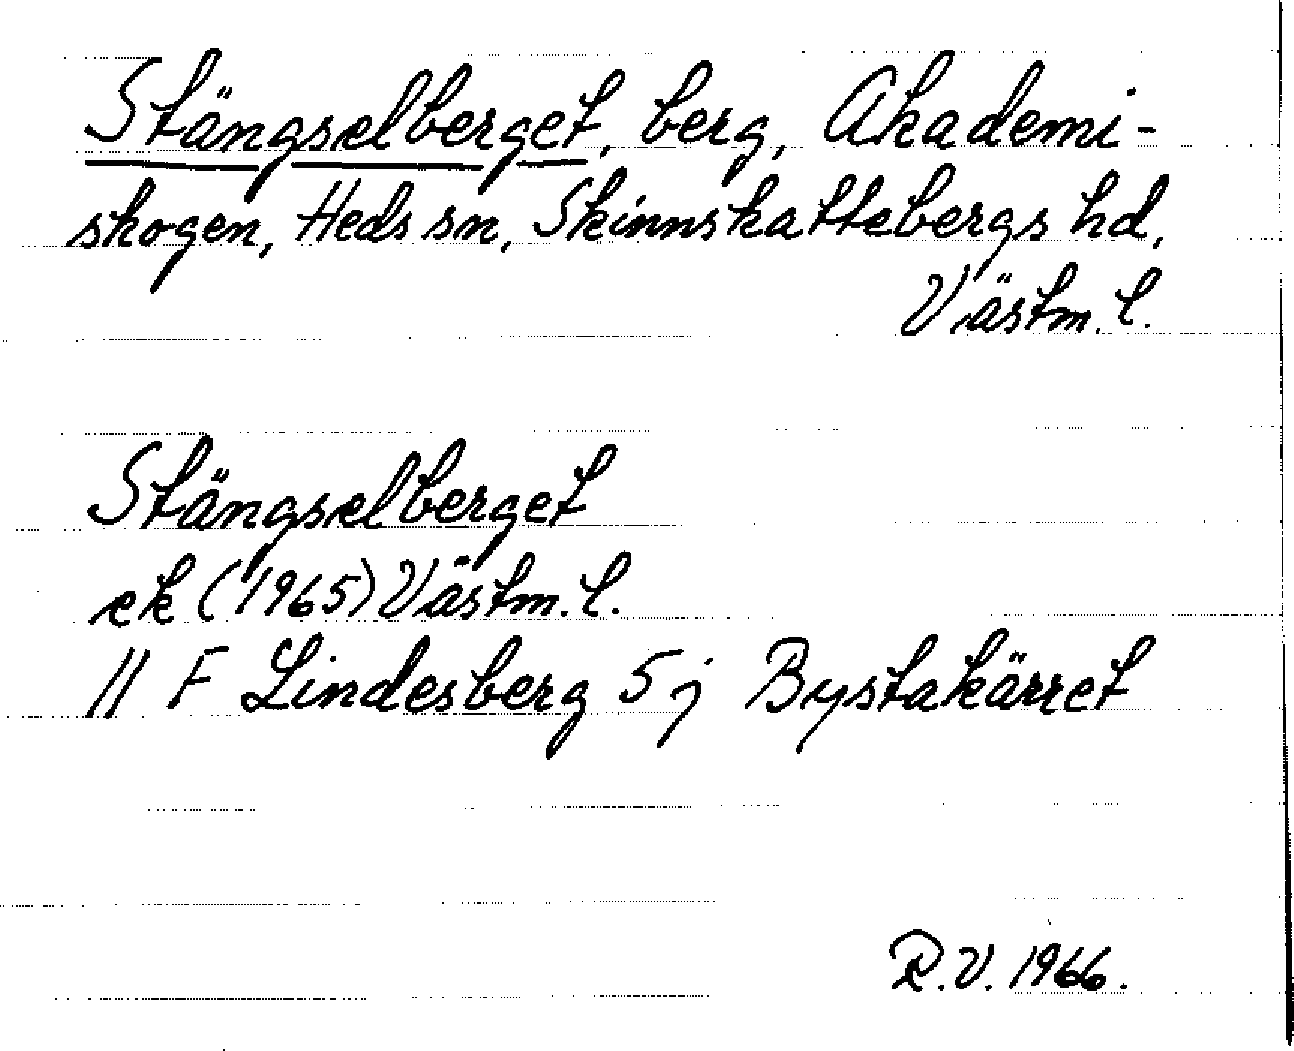 Stängselberget, berg, Akademi-
skogen, Heds sn, Skinnskattebergs hd,
Västm. l.
Stängselberget
ek (1965) Västm. l.
11 F Lindesberg 5 j Bystakärret
R.V. 1966.